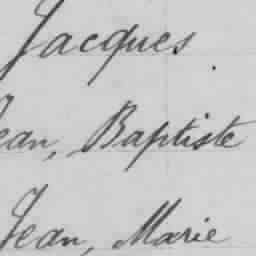 Jacques
Jean, Baptiste
Jean, Marie